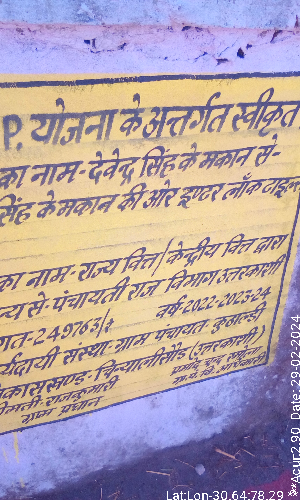 P. योजना के अन्तर्गत स्वीकृत
का नाम- देवेन्द्र सिंह के मकान से-
सिंह के मकान की ओर इण्टर लॉक टाइल
का नाम- राज्य वित्त/केन्द्रीय वित्त द्वारा
से पंचायती राज विभाग उत्तरकाशी
गत-249763/₹ वर्ष-2022-2023-24
र्यदायी संस्था- ग्राम पंचायत-
कासखण्ड- चिन्यालीसौड़ (उत्तरकाशी)
मती राजकुमारी
ग्राम प्रधान
ग्रा.पं.वि.अधिकारी
LatLon-30.64:78.29
**Acur:2.90 Date:29-02-2024